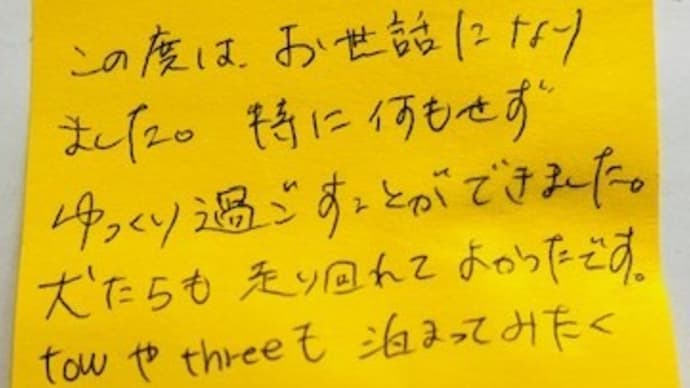 この度は、お世話になり
ました。特に何もせず
ゆっくり過ごすことができました。
犬たちも走り回れてよかったです。
towやthreeも泊まってみたく